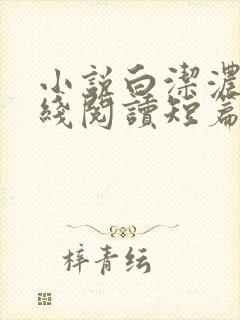 小説白潔濃
綫閱讀短篇
梓青纭